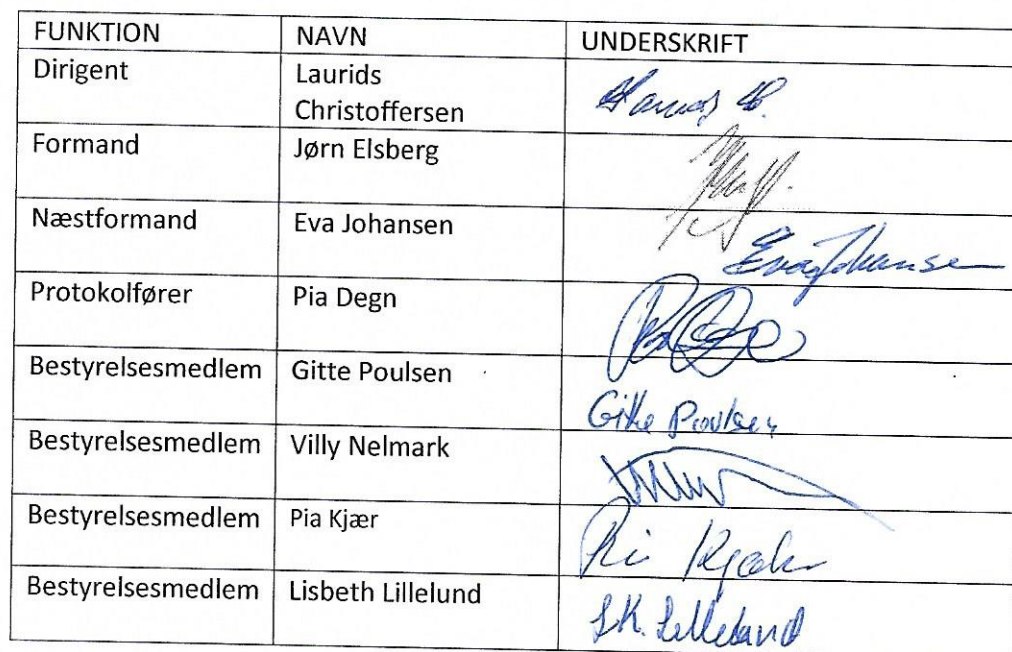 FUNKTION NAVN UNDERSKRIFT
Dirigent Laurids
Christoffersen
Formand Jørn Elsberg
Næstformand Eva Johansen
Eva Johansen
Protokolfører Pia Degn
Bestyrelsesmedlem Gitte Poulsen
Gitte Poulsen
Bestyrelsesmedlem Villy Nelmark
Bestyrelsesmedlem Pia Kjær
Pia Kjær
Bestyrelsesmedlem Lisbeth Lillelund
L.K. Lillelund